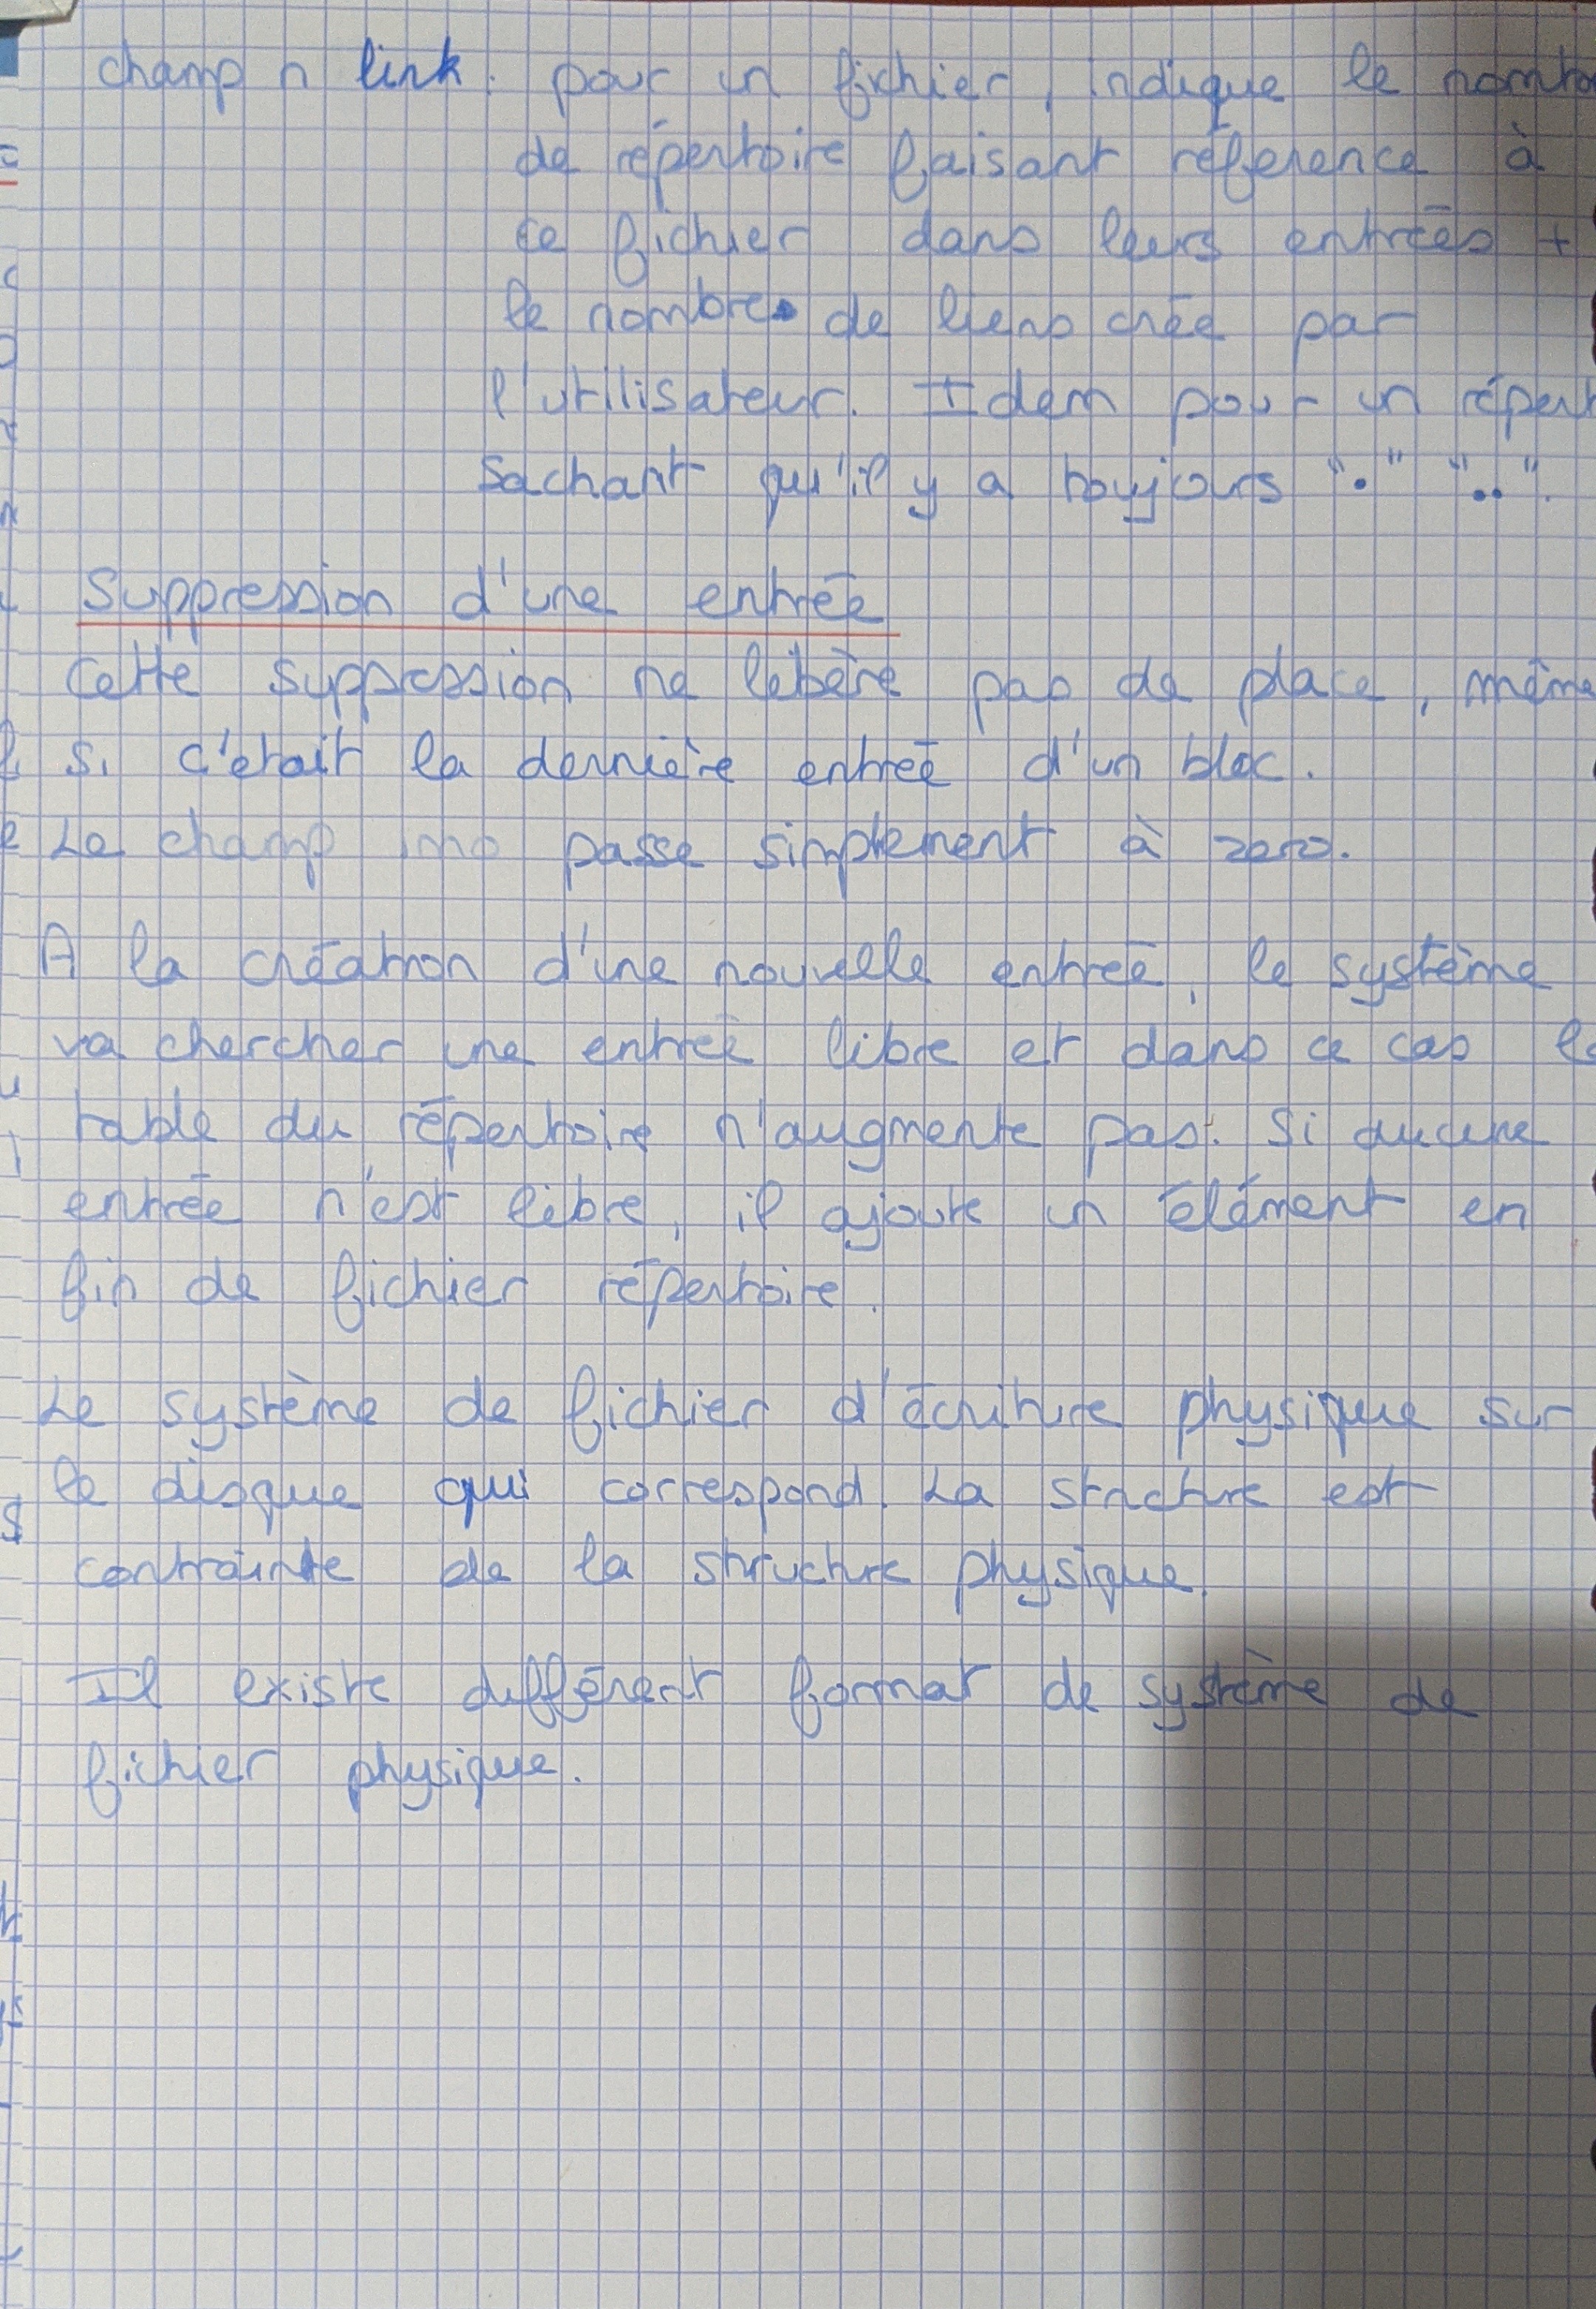 champ n link : pour un fichier, indique le nombre
de répertoire faisant référence à
ce fichier dans leurs entrées +
le nombre de liens crée par
l'utilisateur. Idem pour un répert
Sachant qu'il y a toujours "." "..".
Suppression d'une entrée
Cette suppression ne libère pas de place, même
si c'était la dernière entrée d'un bloc.
Le champ ino passe simplement à zero.
A la création d'une nouvelle entrée, le système
va chercher une entrée libre et dans ce cas la
table du répertoire n'augmente pas. Si aucune
entrée n'est libre, il ajoute un élément en
fin de fichier répertoire.
Le système de fichier d'écriture physique sur
le disque qui correspond. La structure est
contrainte de la structure physique.
Il existe différent format de système de
fichier physique.